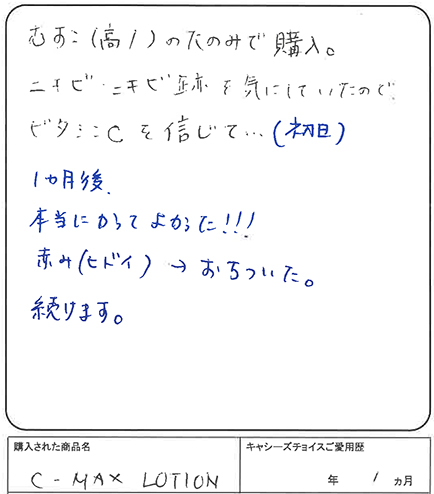 むすこ(高1)のたのみで購入。
ニキビ・ニキビ跡を気にしていたので、
ビタミンCを信じて…(初日)
1カ月後、
本当にかってよかった!!!
赤み(ヒドイ)→おちついた。
続けます。
購入された商品名
キャシーズチョイスご愛用歴
C-MAX LOTION
年 1 ヵ月